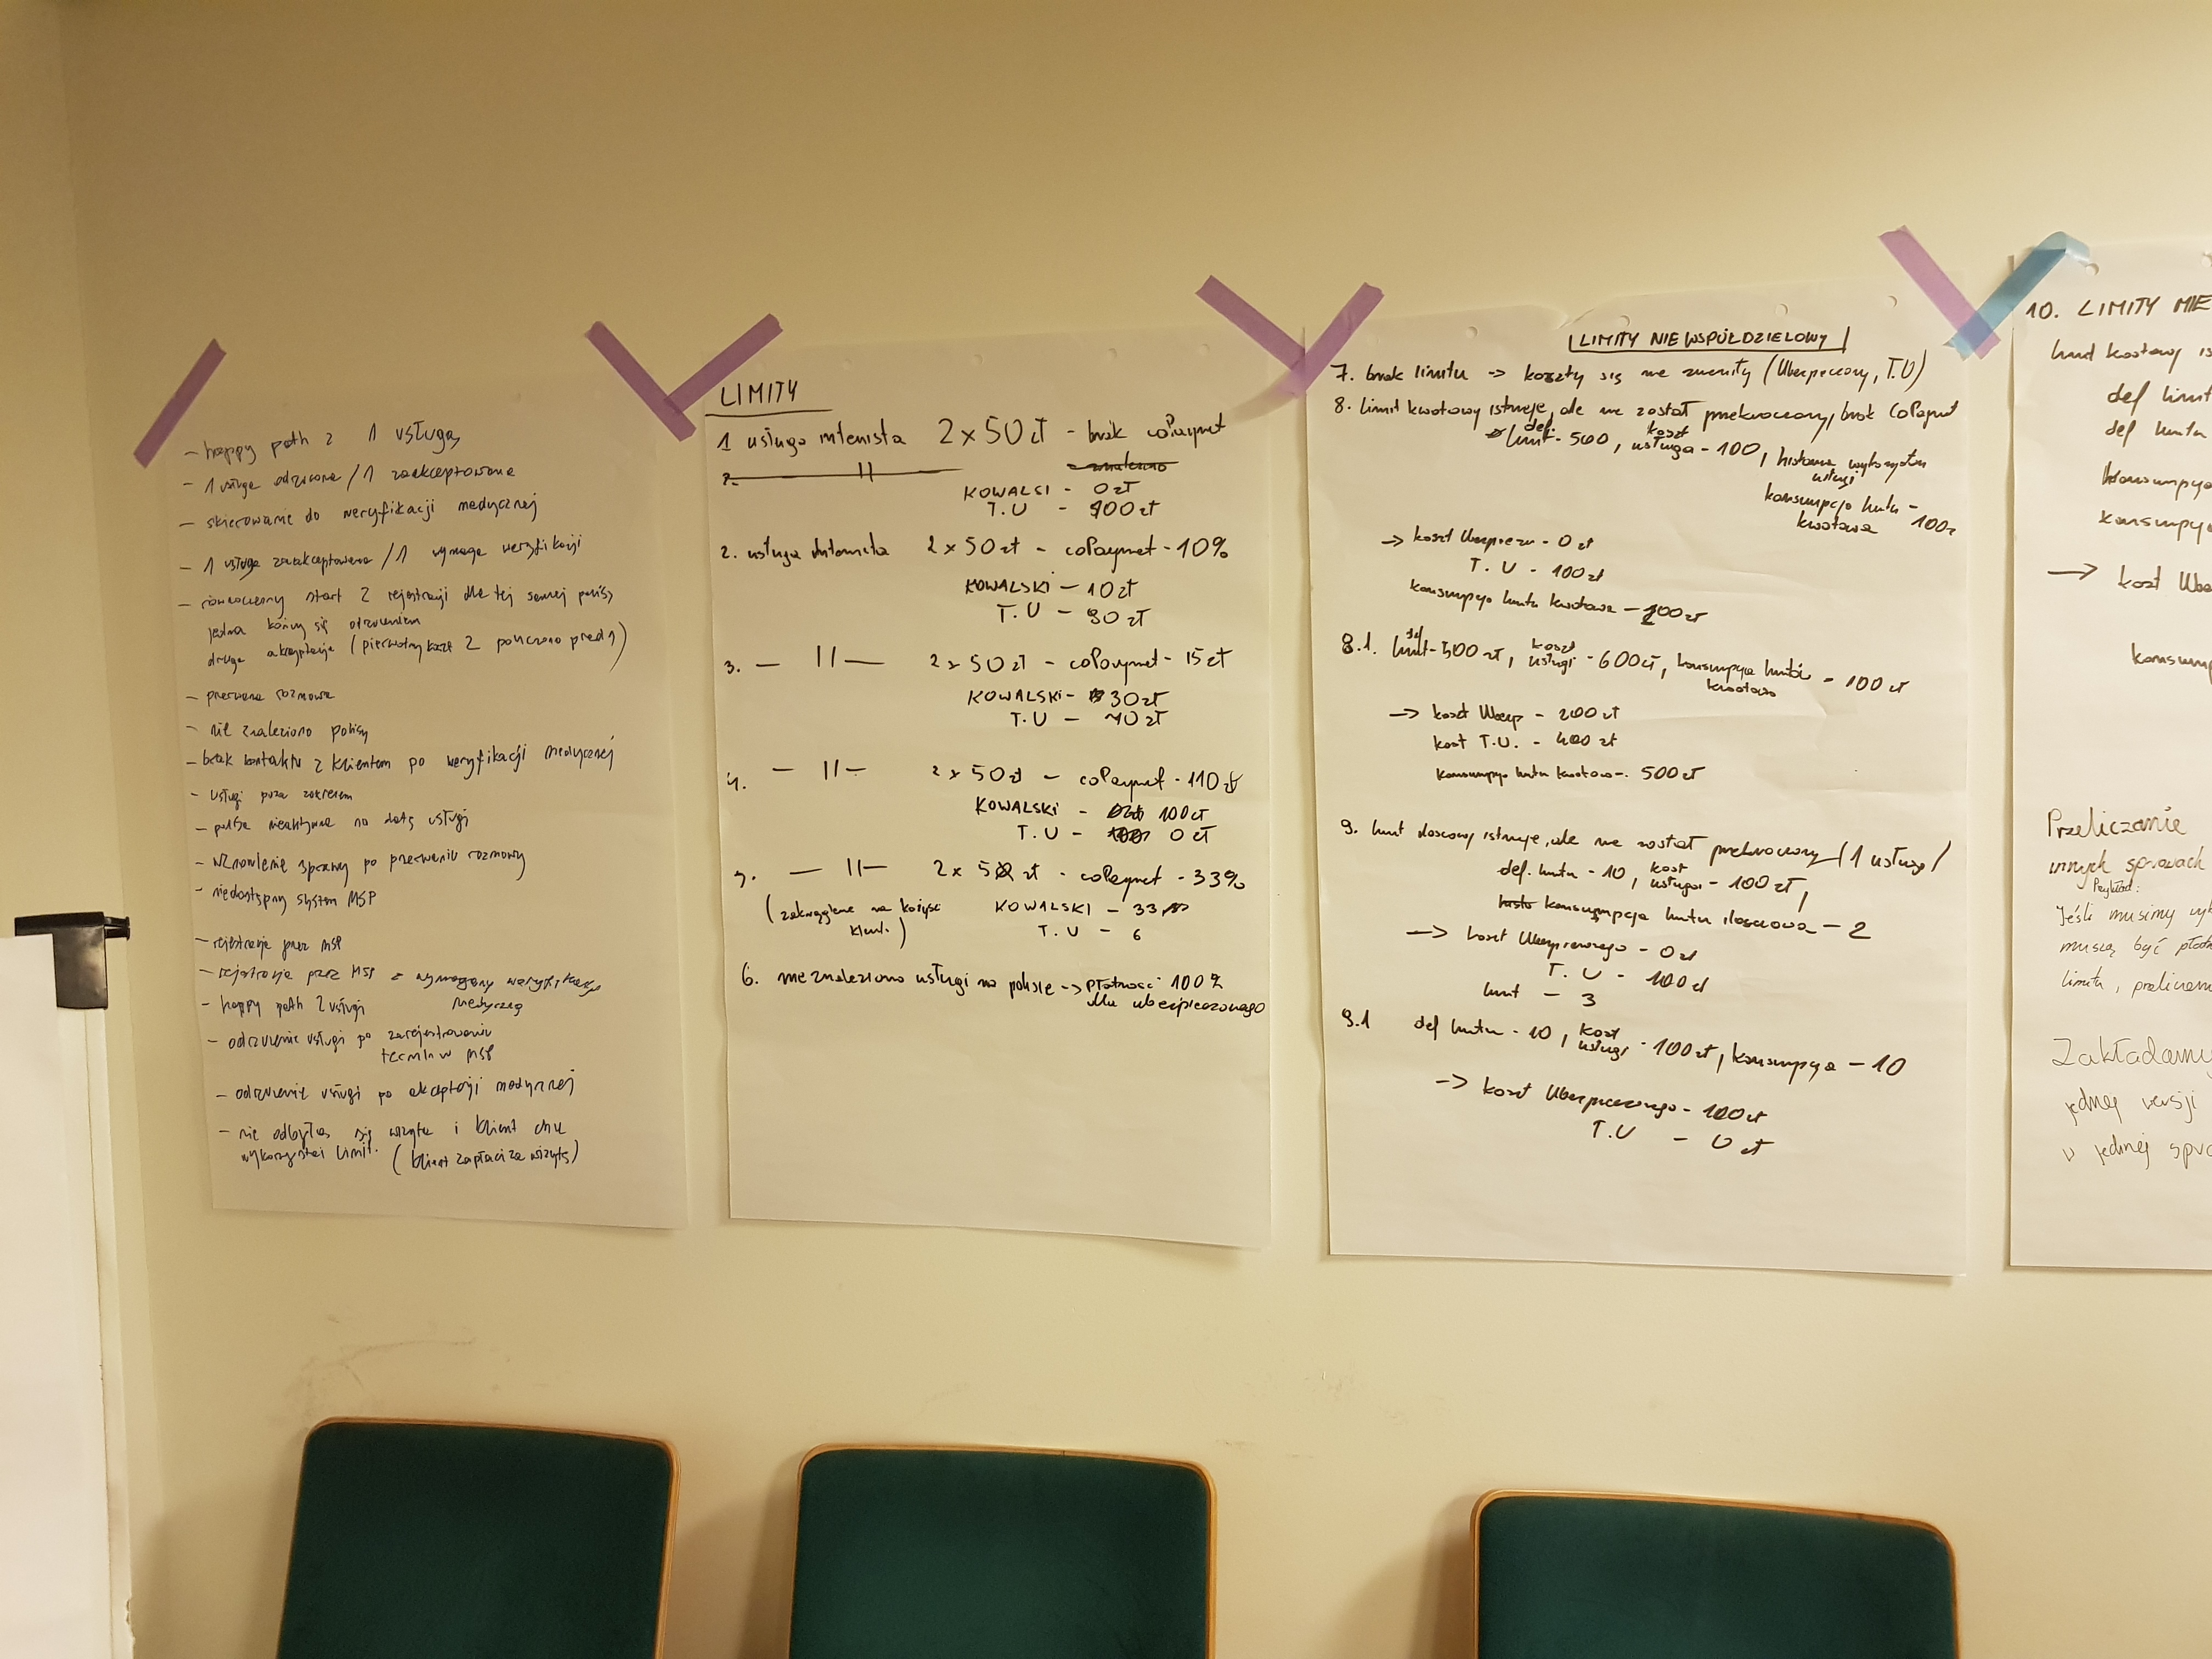 - happy path z 1 usługą
- 1 usługa odrzucona / 1 zaakceptowana
- skierowanie do weryfikacji medycznej
- 1 usługa zaakceptowana / 1 wymaga weryfikacji
- równoczesny start 2 rejestracji dla tej samej polisy
jedna kończy się odrzuceniem
druga akceptacja (pierwotny koszt 2 policzono przed 1)
- przerwana rozmowa
- nie znaleziono polisy
- brak kontaktu z klientem po weryfikacji medycznej
- usługi poza zakresem
- polisa nieaktywna na datę usługi
- wznowienie sprawy po przerwaniu rozmowy
- niedostępny system MSP
- rejestracja przez MSP
- rejestracja przez MSP z wymaganą weryfikacją
medyczną
- happy path 2 usługi
- odrzucenie usługi po zarejestrowaniu
termin w MSP
- odrzucenie usługi po akceptacji medycznej
- nie odbyła się wizyta i klient chce
wykorzystać limit. (klient zapłaci za wizytę)
LIMITY
1 usługa internista 2 x 50 zł - brak coPaymet
2. — 11
KOWALSKI - 0 zł
T.U - 100 zł
2. usługa internista 2 x 50 zł - coPaymet - 10%
KOWALSKI - 10 zł
T.U - 90 zł
3. — 11 — 2 x 50 zł - coPaymet - 15 zł
KOWALSKI - 30 zł
T.U - 70 zł
4. — 11 — 2 x 50 zł - coPaymet - 110 zł
KOWALSKI - 100 zł
T.U - 0 zł
5. — 11 — 2 x 5 zł - coPaymet - 33%
(zaokrąglenie na korzyść KOWALSKI - 33
klient.) T.U - 6
6. nie znaleziono usługi na polisie -> płatność 100%
dla ubezpieczonego
LIMITY NIEWSPÓŁDZIELOWY
7. brak limitu -> koszty się nie zmieniły (Ubezpieczony, T.U)
8. limit kwotowy istnieje, ale nie został przekroczony, brak CoPaymet
def. limit - 500, koszt usługa - 100, historia wykorzystan
usługi
konsumpcja limitu - 100zł
kwotowa
-> koszt Ubezpiecz - 0 zł
T.U - 100 zł
konsumpcja limitu kwotowa - 200 zł
8.1. def limit - 500 zł, koszt usługi - 600 zł, konsumpcja limitów - 100 zł
kwotowa
-> koszt Ubezp - 200 zł
koszt T.U. - 400 zł
konsumpcja limitu kwotowa - 500 zł
9. limit ilosciowy istnieje, ale nie został przekroczony (1 usługa)
def. limitu - 10, koszt usługa - 100 zł,
konsumpcja limitu ilosciowa - 2
-> koszt Ubezpieczonego - 0 zł
T.U - 100 zł
limit - 3
9.1 def limitu - 10, koszt usługi - 100 zł, konsumpcja - 10
-> koszt Ubezpieczonego - 100 zł
T.U - 0 zł
10. LIMITY NIE
limit kwotowy is
def limit
def limitu
konsumpcja
konsumpcja
-> koszt Ube
konsump
Przeliczanie
innych sprawach
Przykład:
Jeśli musimy
muszą być
limitu,
Zakładamy
jednej wersji
w jednej spra